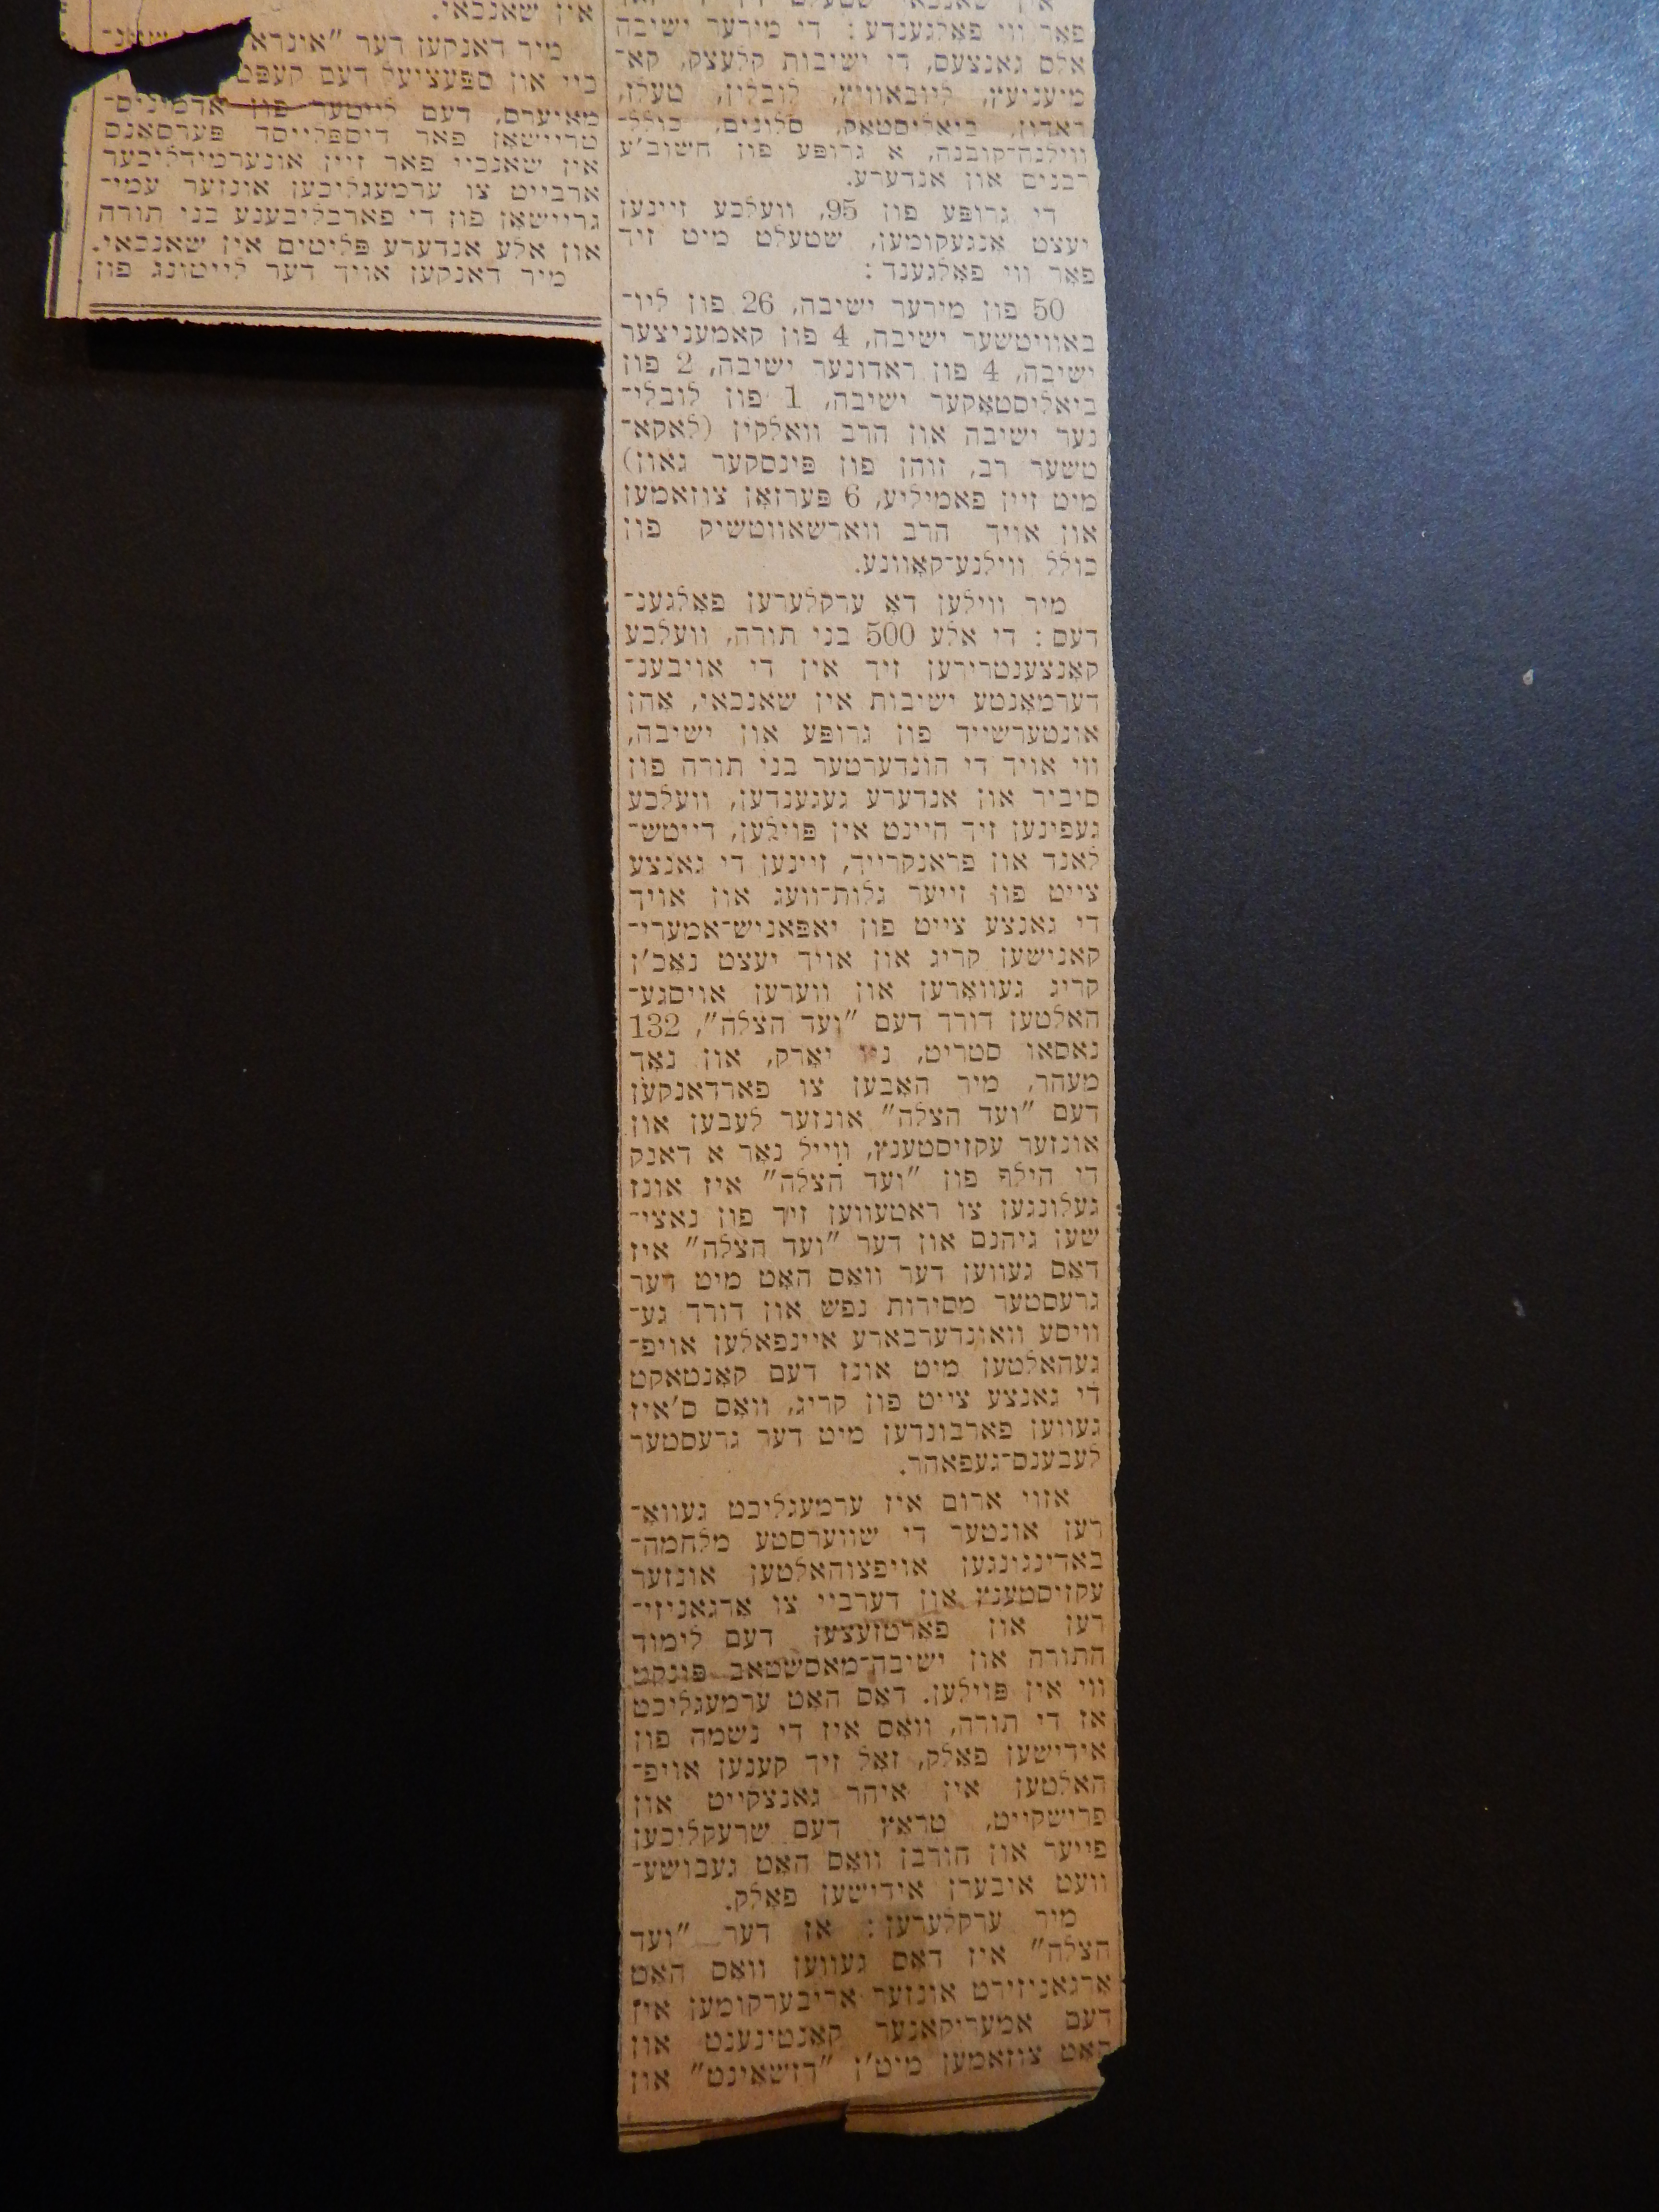 פאר ווי פאלגענדע: די מירער ישיבה
אלס גאנצעס, די ישיבות קלעצק, קא־
מיעניעץ, ליובאוויץ, לובלין, טעלז,
ראדון, ביאליסטאק, סלונים, כולל־
ווילנה־קובנה, א גרופע פון חשוב'ע
רבנים און אנדערע.
די גרופע פון 95, וועלכע זיינען
יעצט אנגעקומען, שטעלט מיט זיך
פאר ווי פאלגענד:
50 פון מירער ישיבה, 26 פון ליו־
באוויטשער ישיבה, 4 פון קאמעניצער
ישיבה, 4 פון ראדונער ישיבה, 2 פון
ביאליסטאקער ישיבה, 1 פון לובלי־
נער ישיבה און הרב וואלקין (לאקא־
טשער רב, זוהן פון פינסקער גאון)
מיט זיין פאמיליע, 6 פערזאן צוזאמען
און אויך הרב ווארשאווטשיק פון
כולל ווילנע־קאוונע.
מיר ווילען דא ערקלערען פאלגענ־
דעם: די אלע 500 בני תורה, וועלכע
קאנצענטרירען זיך אין די אויבענ־
דערמאנטע ישיבות אין שאנכאי, אהן
אונטערשייד פון גרופע און ישיבה,
ווי אויך די הונדערטער בני תורה פון
סיביר און אנדערע געגענדען, וועלכע
געפינען זיך היינט אין פוילען, דייטש־
לאנד און פראנקרייך, זיינען די גאנצע
צייט פון זייער גלות־וועג און אויך
די גאנצע צייט פון יאפאניש־אמערי־
קאנישען קריג און אויך יעצט נאכ'ן
קריג געווארען און ווערען אויסגע־
האלטען דורך דעם "ועד הצלה", 132
נאסאו סטריט, ניו יארק, און נאך
מעהר, מיר האבען צו פארדאנקען
דעם "ועד הצלה" אונזער לעבען און
אונזער עקזיסטענץ, ווייל נאר א דאנק
די הילף פון "ועד הצלה" איז אונז
געלונגען צו ראטעווען זיך פון נאצי־
שען גיהנם און דער "ועד הצלה" איז
דאס געווען דער וואס האט מיט דער
גרעסטער מסירות נפש און דורך גע־
וויסע וואונדערבארע איינפאלען אויפ־
געהאלטען מיט אונז דעם קאנטאקט
די גאנצע צייט פון קריג, וואס ס'איז
געווען פארבונדען מיט דער גרעסטער
לעבענס־געפאהר.
אזוי ארום איז ערמעגליכט געווא־
רען אונטער די שווערסטע מלחמה־
באדינגונגען אויפצוהאלטען אונזער
עקזיסטענץ און דערביי צו ארגאניזי־
רען און פארטזעצען דעם לימוד
התורה און ישיבה־מאסשטאב פונקט
ווי אין פוילען. דאס האט ערמעגליכט
אז די תורה, וואס איז די נשמה פון
אידישען פאלק, זאל זיך קענען אויפ־
האלטען אין איהר גאנצקייט און
פרישקייט, טראץ דעם שרעקליכען
פייער און חורבן וואס האט געבושע־
וועט איבערן אידישען פאלק.
מיר ערקלערען: אז דער "ועד
הצלה" איז דאס געווען וואס האט
ארגאניזירט אונזער אריבערקומען אין
דעם אמעריקאנער קאנטינענט און
האט צוזאמען מיט'ן "דזשאינט" און
אין שאנכאי.
מיר דאנקען דער "אונרא
כיי און ספעציעל דעם קעפט
מאיערס, דעם לייטער פון אדמיניס־
טריישאן פאר דיספלייסד פערסאנס
אין שאנכיי פאר זיין אונערמידליכער
ארבייט צו ערמעגליכען אונזער עמי־
גריישאן פון די פארבליבענע בני תורה
און אלע אנדערע פליטים אין שאנכאי.
מיר דאנקען אויך דער לייטונג פון